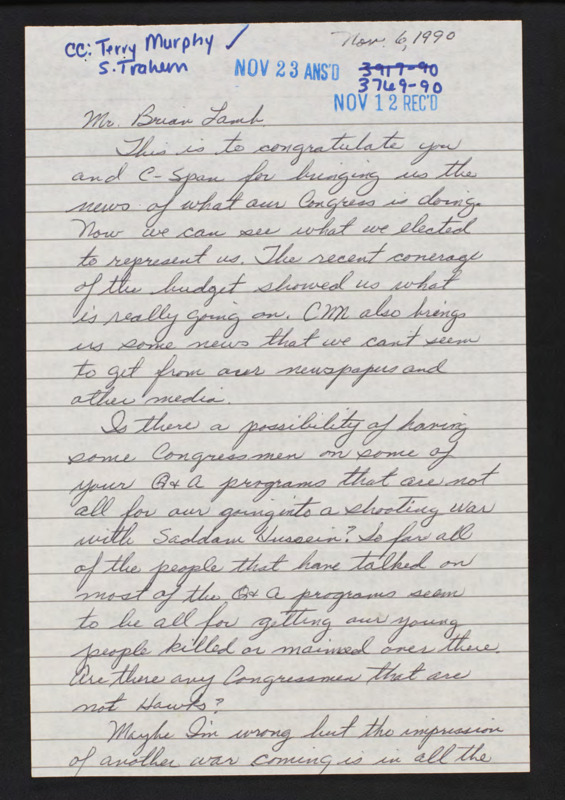 CC: Terry Murphy ✓
S. Trahern
Nov. 6, 1990
NOV 23 ANS'D
3917-90
3769-90
NOV 12 REC'D
Mr. Brian Lamb.
This is to congratulate you
and C-Span for bringing us the
news of what our Congress is doing.
Now we can see what we elected
to represent us. The recent coverage
of the budget showed us what
is really going on. CNN also brings
us some news that we can't seem
to get from our newspapers and
other media.
Is there a possibility of having
some Congressmen on some of
your Q & A programs that are not
all for our going into a shooting war
with Saddam Hussein? So far all
of the people that have talked on
most of the Q & A programs seem
to be all for getting our young
people killed or maimed over there.
Are there any Congressmen that are
not Hawks?
Maybe I'm wrong but the impression
of another war coming is in all the